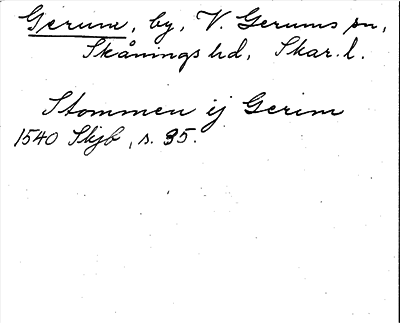 Gerum, by, V. Gerums sn,
Skånings hd, Skar. l.
Stommen ij Gerim
1540 Skjb, s. 35.